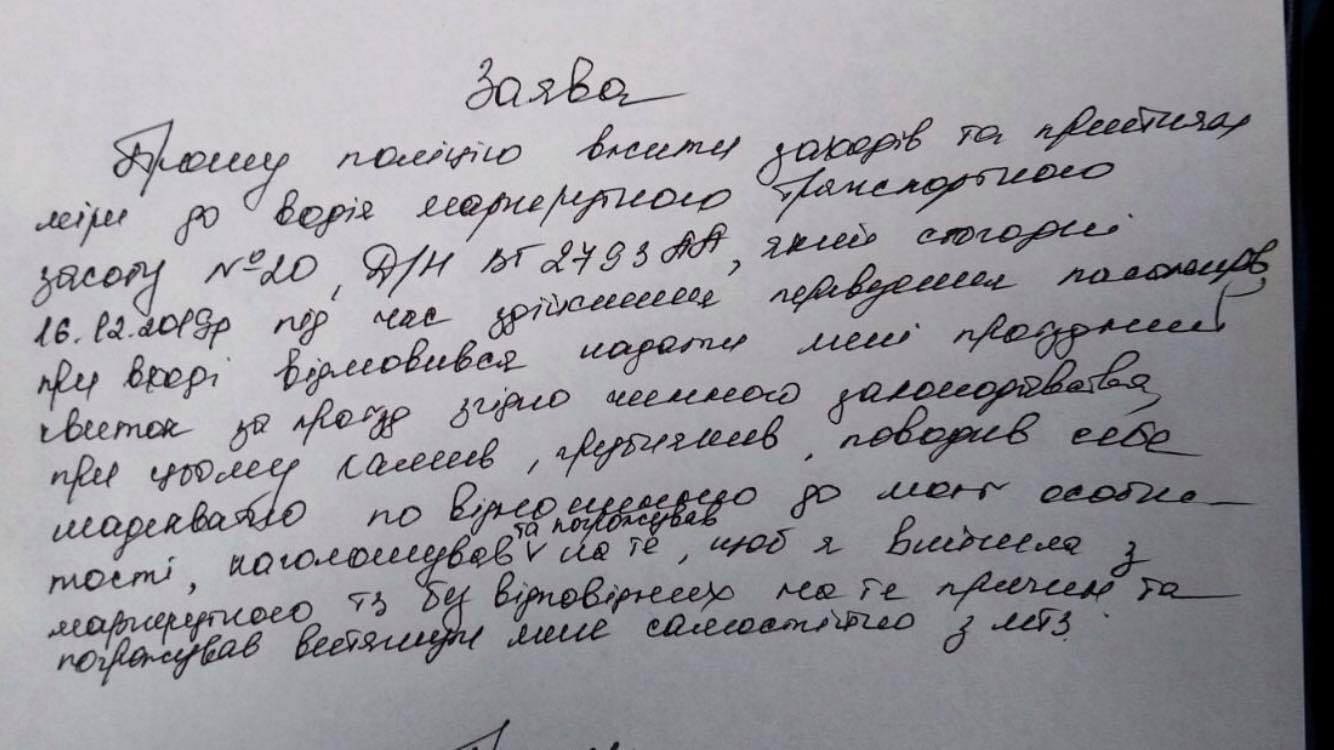 Заява
Прошу поліцію вжити заходів та притягях
міри до водія маршрутного транспортного
засобу №20, Д/Н ВТ 2793 АА, який сьогодні
16.12.2019р під час здійснення перевезення пасажирів,
при вході відмовився надати мені проїздний
квиток за проїзд згідно чинного законодавства,
при цьому хамив, грубіянив, поводив себе
неадекватно по відношенню до моєї особис-
тості, наголошував та погрожував на те, щоб я вийшла з
маршрутного тз без відповідних на те причин та
погрожував витягнути мене самостійно з мтз.